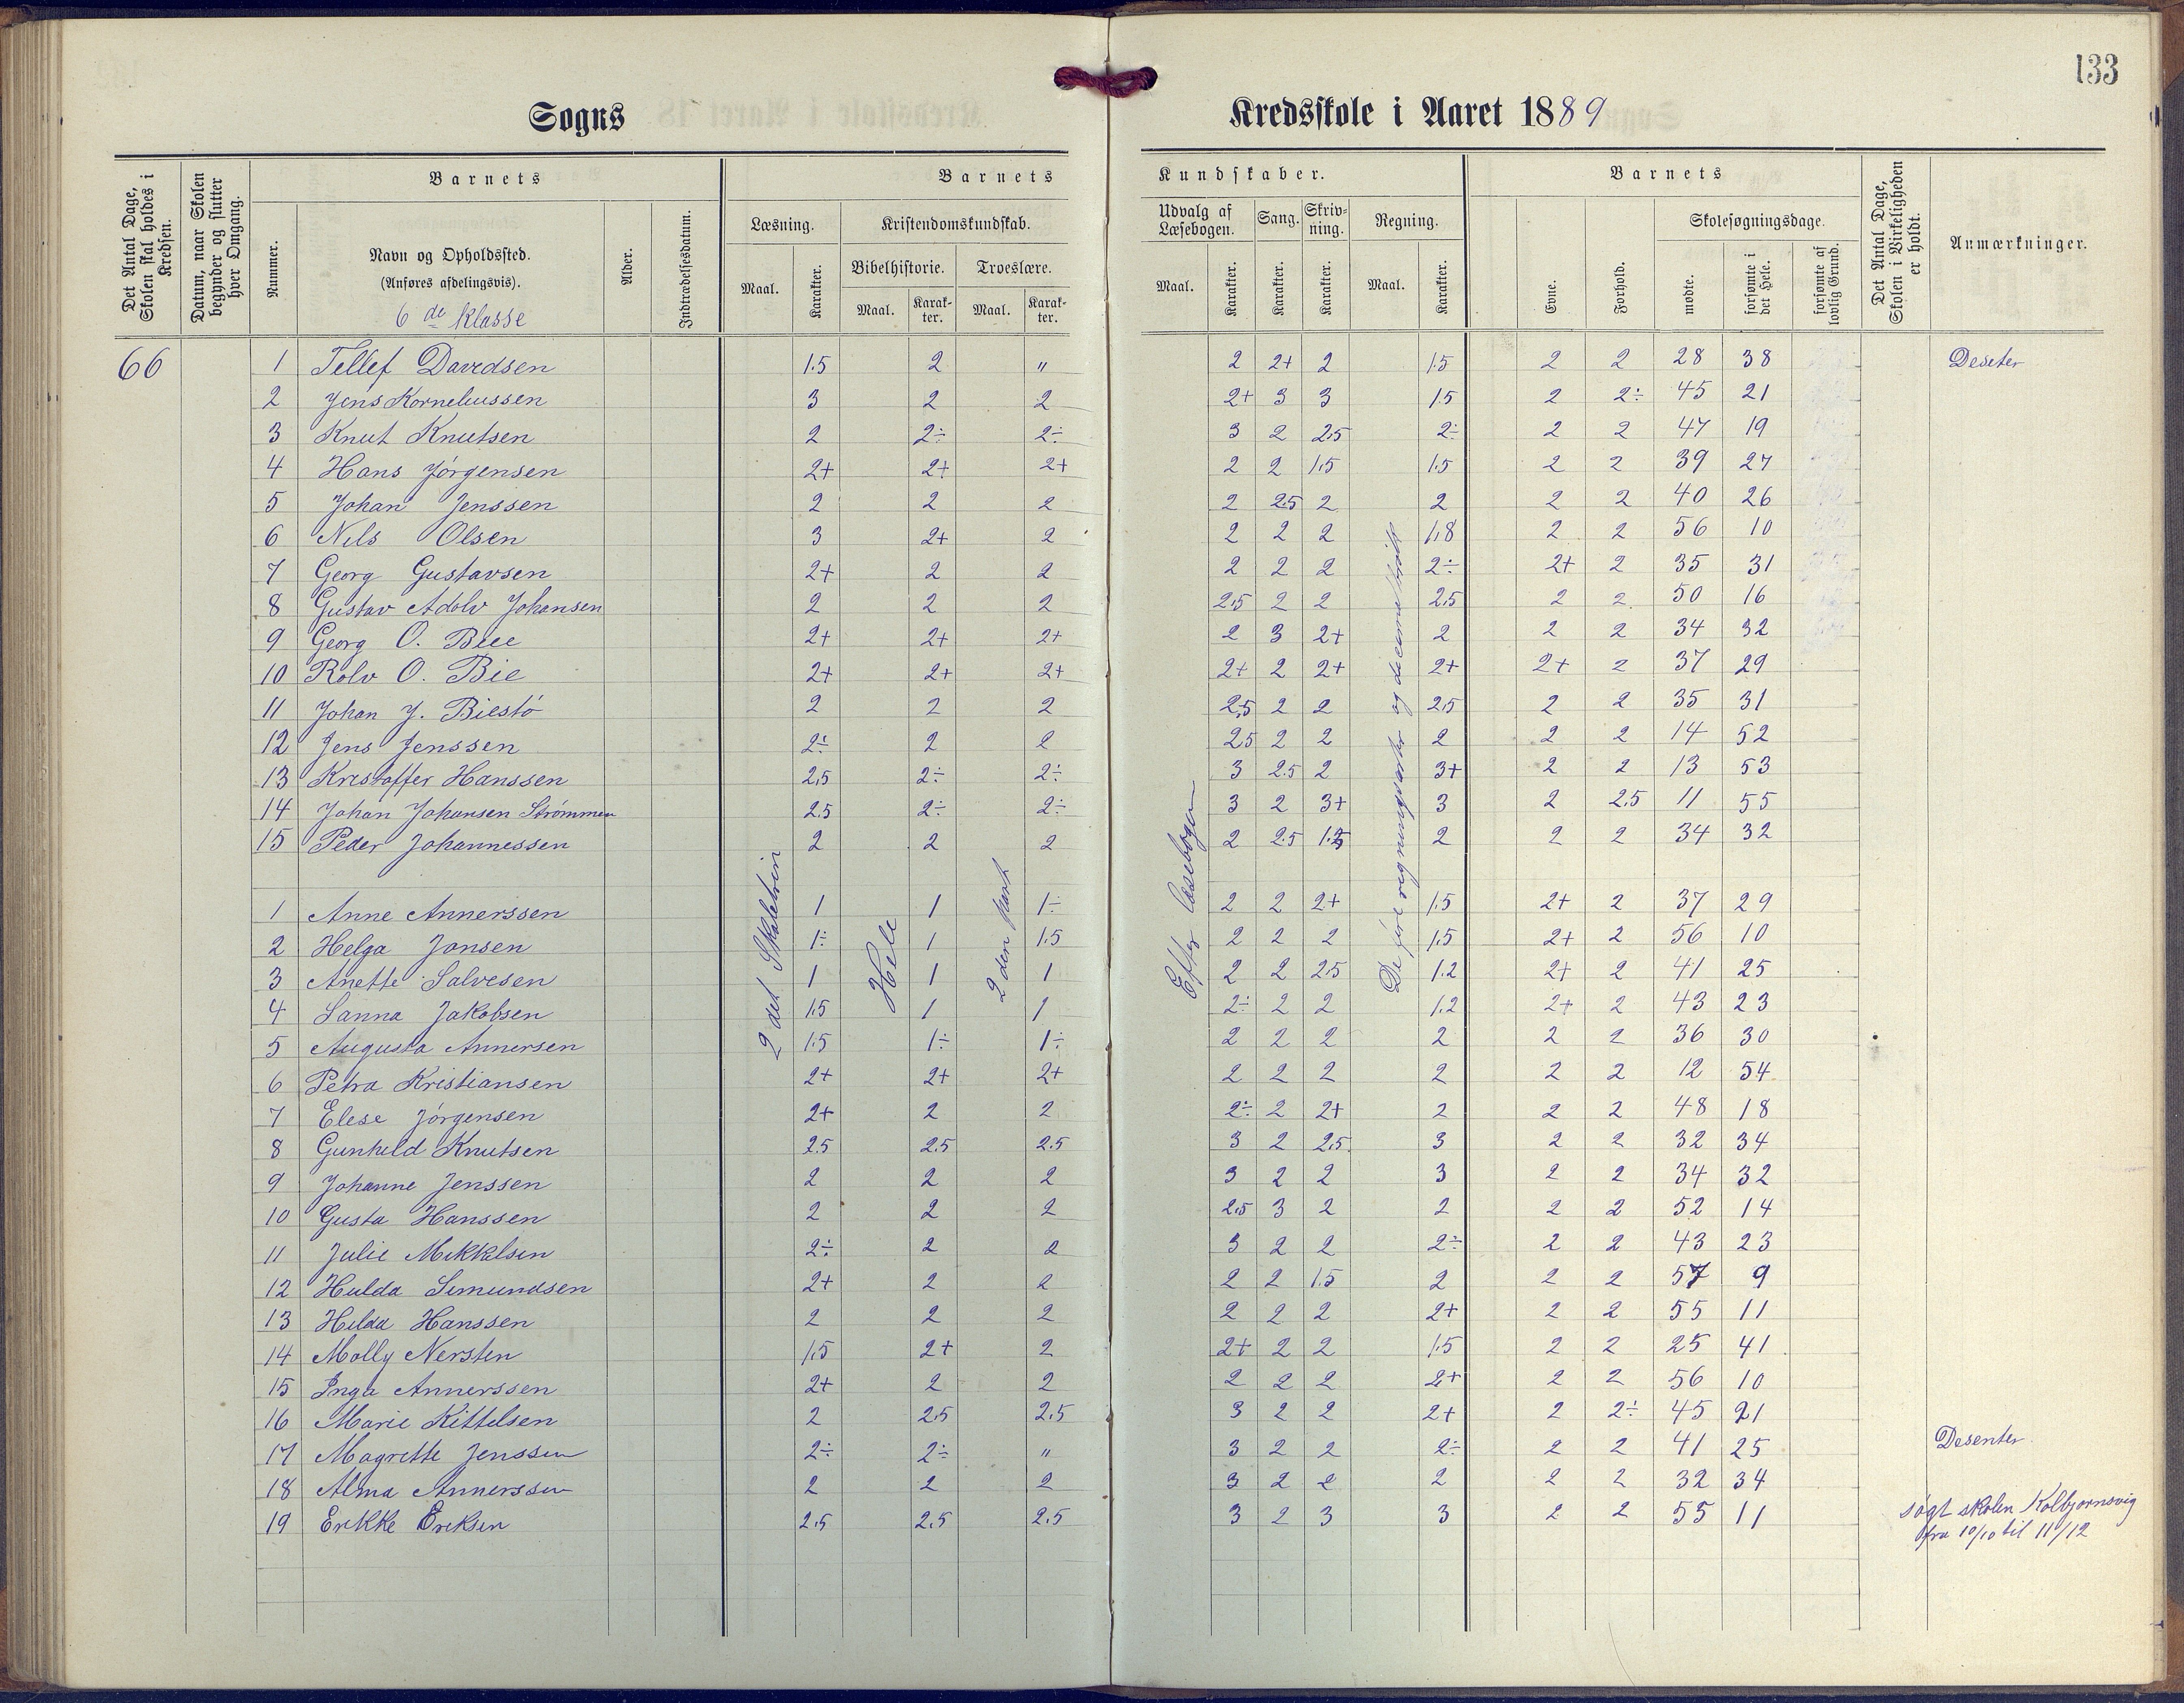 133
Sogns Kredsskole i Aaret 1889
Det Antal Dage, Skolen skal holdes i Kredsen.
Datum, naar Skolen begynder og slutter hver Omgang.
Barnets
Nummer.
Navn og Opholdssted.
(Anføres afdelingsvis).
6 de Klasse
Alder.
Indtrædelsesdatum.
Barnets Kundskaber.
Læsning.
Maal. Karakter.
Kristendomskundskab.
Bibelhistorie. Troeslære.
Maal. Karakter. Maal. Karakter.
Udvalg af Læsebogen.
Maal. Karakter.
Sang. Karakter.
Skrivning. Karakter.
Regning.
Maal. Karakter.
Barnets
Evne. Forhold.
Skolesøgningsdage.
mødte. forsømte i det Hele. forsømte af lovlig Grund.
Det Antal Dage, Skolen i Virkeligheden er holdt.
Anmærkninger.
66
1 Tellef Davidsen 1.5 2 " 2 2+ 2 1.5 2 2 28 38 Deseter
2 Jens Korneliussen 3 2 2 2+ 3 3 1.5 2 2÷ 45 21
3 Knut Knutsen 2 2÷ 2÷ 3 2 2.5 2÷ 2 2 47 19
4 Hans Jørgensen 2+ 2+ 2+ 2 2 1.5 1.5 2 2 39 27
5 Johan Jenssen 2 2 2 2 2.5 2 2 2 2 40 26
6 Nils Olsen 3 2+ 2 2 2 2 1.8 2 2 56 10
7 Georg Gustavsen 2+ 2 2 2 2 2 2÷ 2+ 2 35 31
8 Gustav Adolv Johansen 2 2 2 2.5 2 2 2.5 2 2 50 16
9 Georg O. Biee 2+ 2+ 2+ 2 3 2+ 2 2 2 34 32
10 Rolv O. Bie 2+ 2+ 2+ 2+ 2 2+ 2+ 2+ 2 37 29
11 Johan J. Biestø 2 2 2 2.5 2 2 2.5 2 2 35 31
12 Jens Jenssen 2÷ 2 2 2.5 2 2 2 2 2 14 52
13 Kristoffer Hanssen 2.5 2÷ 2÷ 3 2.5 2 3+ 2 2 13 53
14 Johan Johansen Strømmen 2.5 2÷ 2÷ 3 2 3+ 3 2 2.5 11 55
15 Peder Johannessen 2 2 2 2 2.5 1.5 2 2 2 34 32
2 det Skoletrin
Hele
2 den part
Efter læsebogen
De fire regningsarter og
1 Anne Annerssen 1 1 1÷ 2 2 2+ 1.5 2+ 2 37 29
2 Helga Jonsen 1÷ 1 1.5 2 2 2 1.5 2+ 2 56 10
3 Anette Salvesen 1 1 1 2 2 2.5 1.2 2+ 2 41 25
4 Sanna Jakobsen 1.5 1 1 2÷ 2 2 1.2 2+ 2 43 23
5 Augusta Annersen 1.5 1÷ 1÷ 2 2 2 2 2 2 36 30
6 Petra Kristiansen 2+ 2+ 2+ 2 2 2 2 2 2 12 54
7 Elese Jørgensen 2+ 2 2 2÷ 2 2+ 2 2 2 48 18
8 Gunhild Knutsen 2.5 2.5 2.5 3 2 2.5 3 2 2 32 34
9 Johanne Jenssen 2 2 2 3 2 2 3 2 2 34 32
10 Gusta Hanssen 2 2 2 2.5 3 2 2 2 2 52 14
11 Julie Mikkelsen 2÷ 2 2 3 2 2 2÷ 2 2 43 23
12 Hulda Simundsen 2+ 2 2 2 2 1.5 2 2 2 57 9
13 Hilda Hanssen 2 2 2 2 2 2 2+ 2 2 55 11
14 Molly Nersten 1.5 2+ 2 2+ 2 2 1.5 2 2 25 41
15 Inga Annerssen 2+ 2 2 2 2 2 2+ 2 2 56 10
16 Marie Kittelsen 2 2.5 2.5 3 2 2 2+ 2 2÷ 45 21
17 Magrette Jenssen 2÷ 2÷ " 3 2 2 2÷ 2 2 41 25 Desenter
18 Alma Annerssen 2 2 2 3 2 2 2 2 2 32 34
19 Erikke Eriksen 2.5 2.5 2.5 3 2 3 3 2 2 55 11 søgt skolen Kolbjørnsvig
fra 10/10 til 11/12